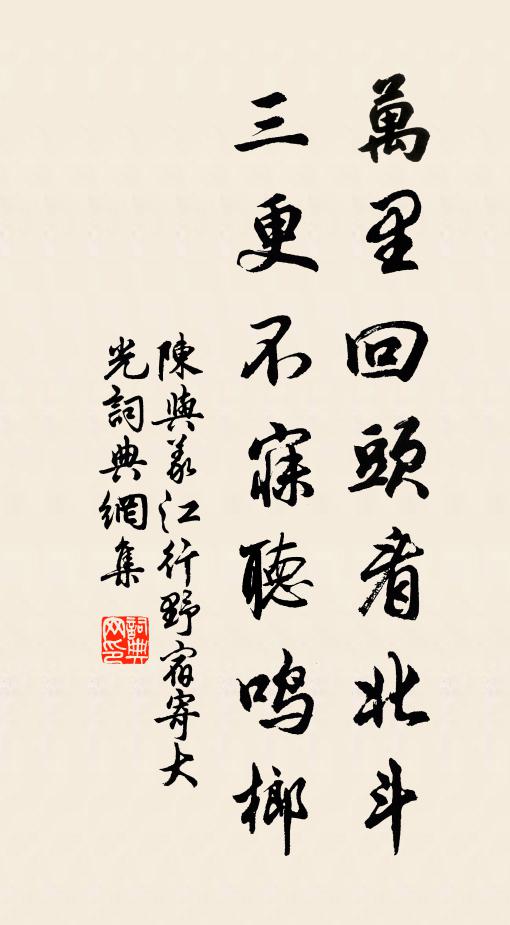 萬里回頭看北斗
三更不寐聽鳴榔
陳與義江行野宿寄大
光詞典網集
詞典
网印